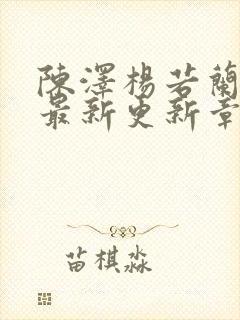 陳澤楊若蘭
最新更新章
苗棋淼